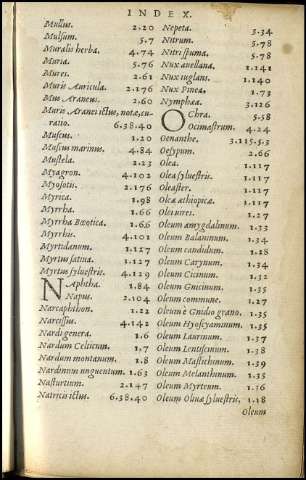 INDEX.
Mullus. 2.20
Mulsum. 5.7
Muralis herba. 4.74
Muria. 5.76
Mures. 2.61
Muris Auricula. 2.176
Mus Araneus. 2.60
Muris Aranei ictus, notæ, cu-
ratio. 6.38.40
Muscus. 1.20
Muscus marinus. 4.84
Mustela. 2.23
Myagron. 4.102
Myosotis. 2.176
Myrica. 1.98
Myrrha. 1.66
Myrrha Bœotica. 1.66
Myrrhis. 4.101
Myrtidanum. 1.127
Myrtus satiua. 1.127
Myrtus syluestris. 4.129
NAphtha. 1.84
Napus. 2.104
Narcaphthon. 1.22
Narcissus. 4.142
Nardi genera. 1.6
Nardum Celticum. 1.7
Nardum montanum. 1.8
Nardinum unguentum. 1.63
Nasturtium. 2.147
Natricis ictus. 6.38.40
Nepeta. 3.34
Nitrum. 5.78
Nitri spuma. 5.78
Nux auellana. 1.141
Nux iuglans. 1.140
Nux Pinea. 1.73
Nymphæa. 3.126
OChra. 5.58
Ocimastrum. 4.24
Oenanthe. 3.115.5.3
Oesypum. 2.66
Olea. 1.117
Olea syluestris. 1.117
Oleaster. 1.117
Olea æthiopica. 1.117
Oleu vires. 1.27
Oleum amygdalinum. 1.33
Oleum Balaninum. 1.34
Oleum candidum. 1.28
Oleum Caryinum. 1.34
Oleum Cicinum. 1.32
Oleum Gnicinum. 1.35
Oleum commune. 1.27
Oleum è Gnidio grano. 1.35
Oleum Hyoscyaminum. 1.35
Oleum Laurinum. 1.37
Oleum Lentiscinum. 1.38
Oleum Mastichinum. 1.39
Oleum Melanthinum. 1.35
Oleum Myrteum. 1.36
Oleum Oliuæ syluestris. 1.18
Oleum